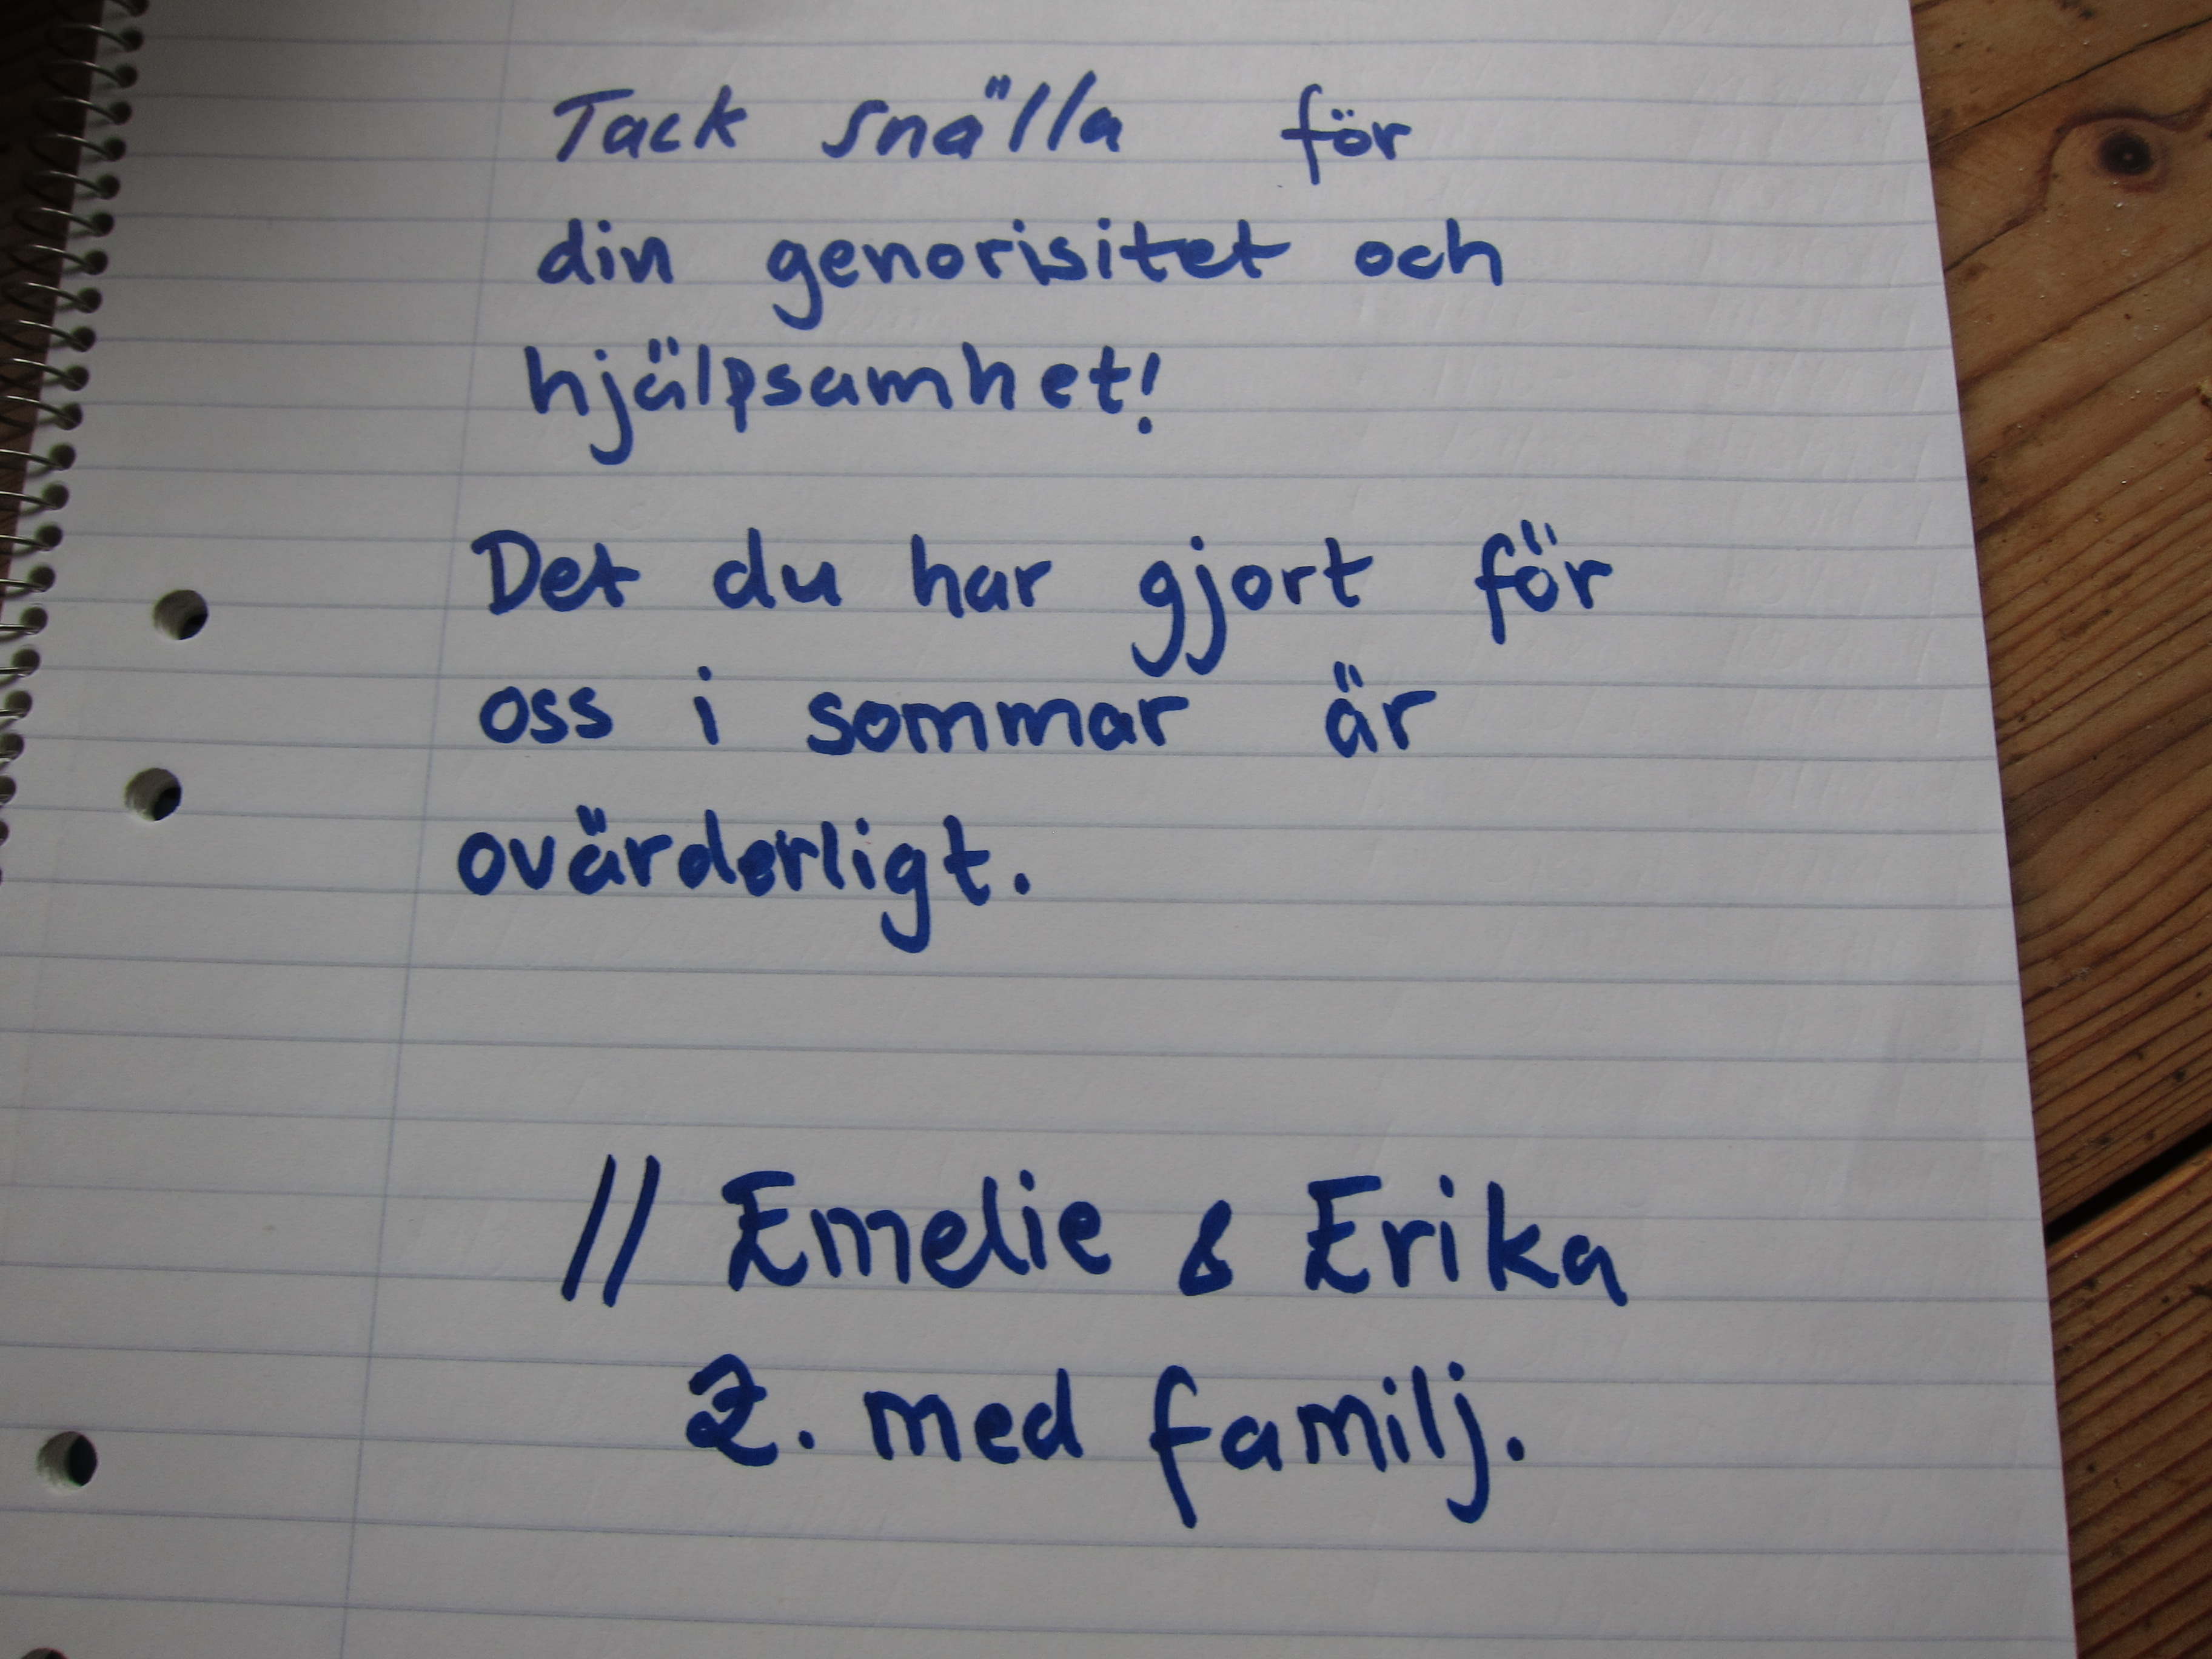 Tack snälla för
din genorisitet och
hjälpsamhet!
Det du har gjort för
oss i sommar är
ovärderligt.
// Emelie & Erika
2. med familj.